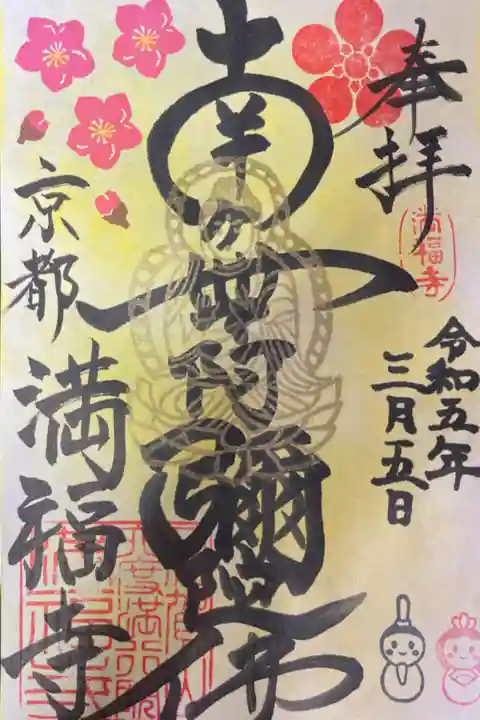 奉拝
満福寺
令和五年
三月五日
南無阿彌陀佛
京都
満福寺